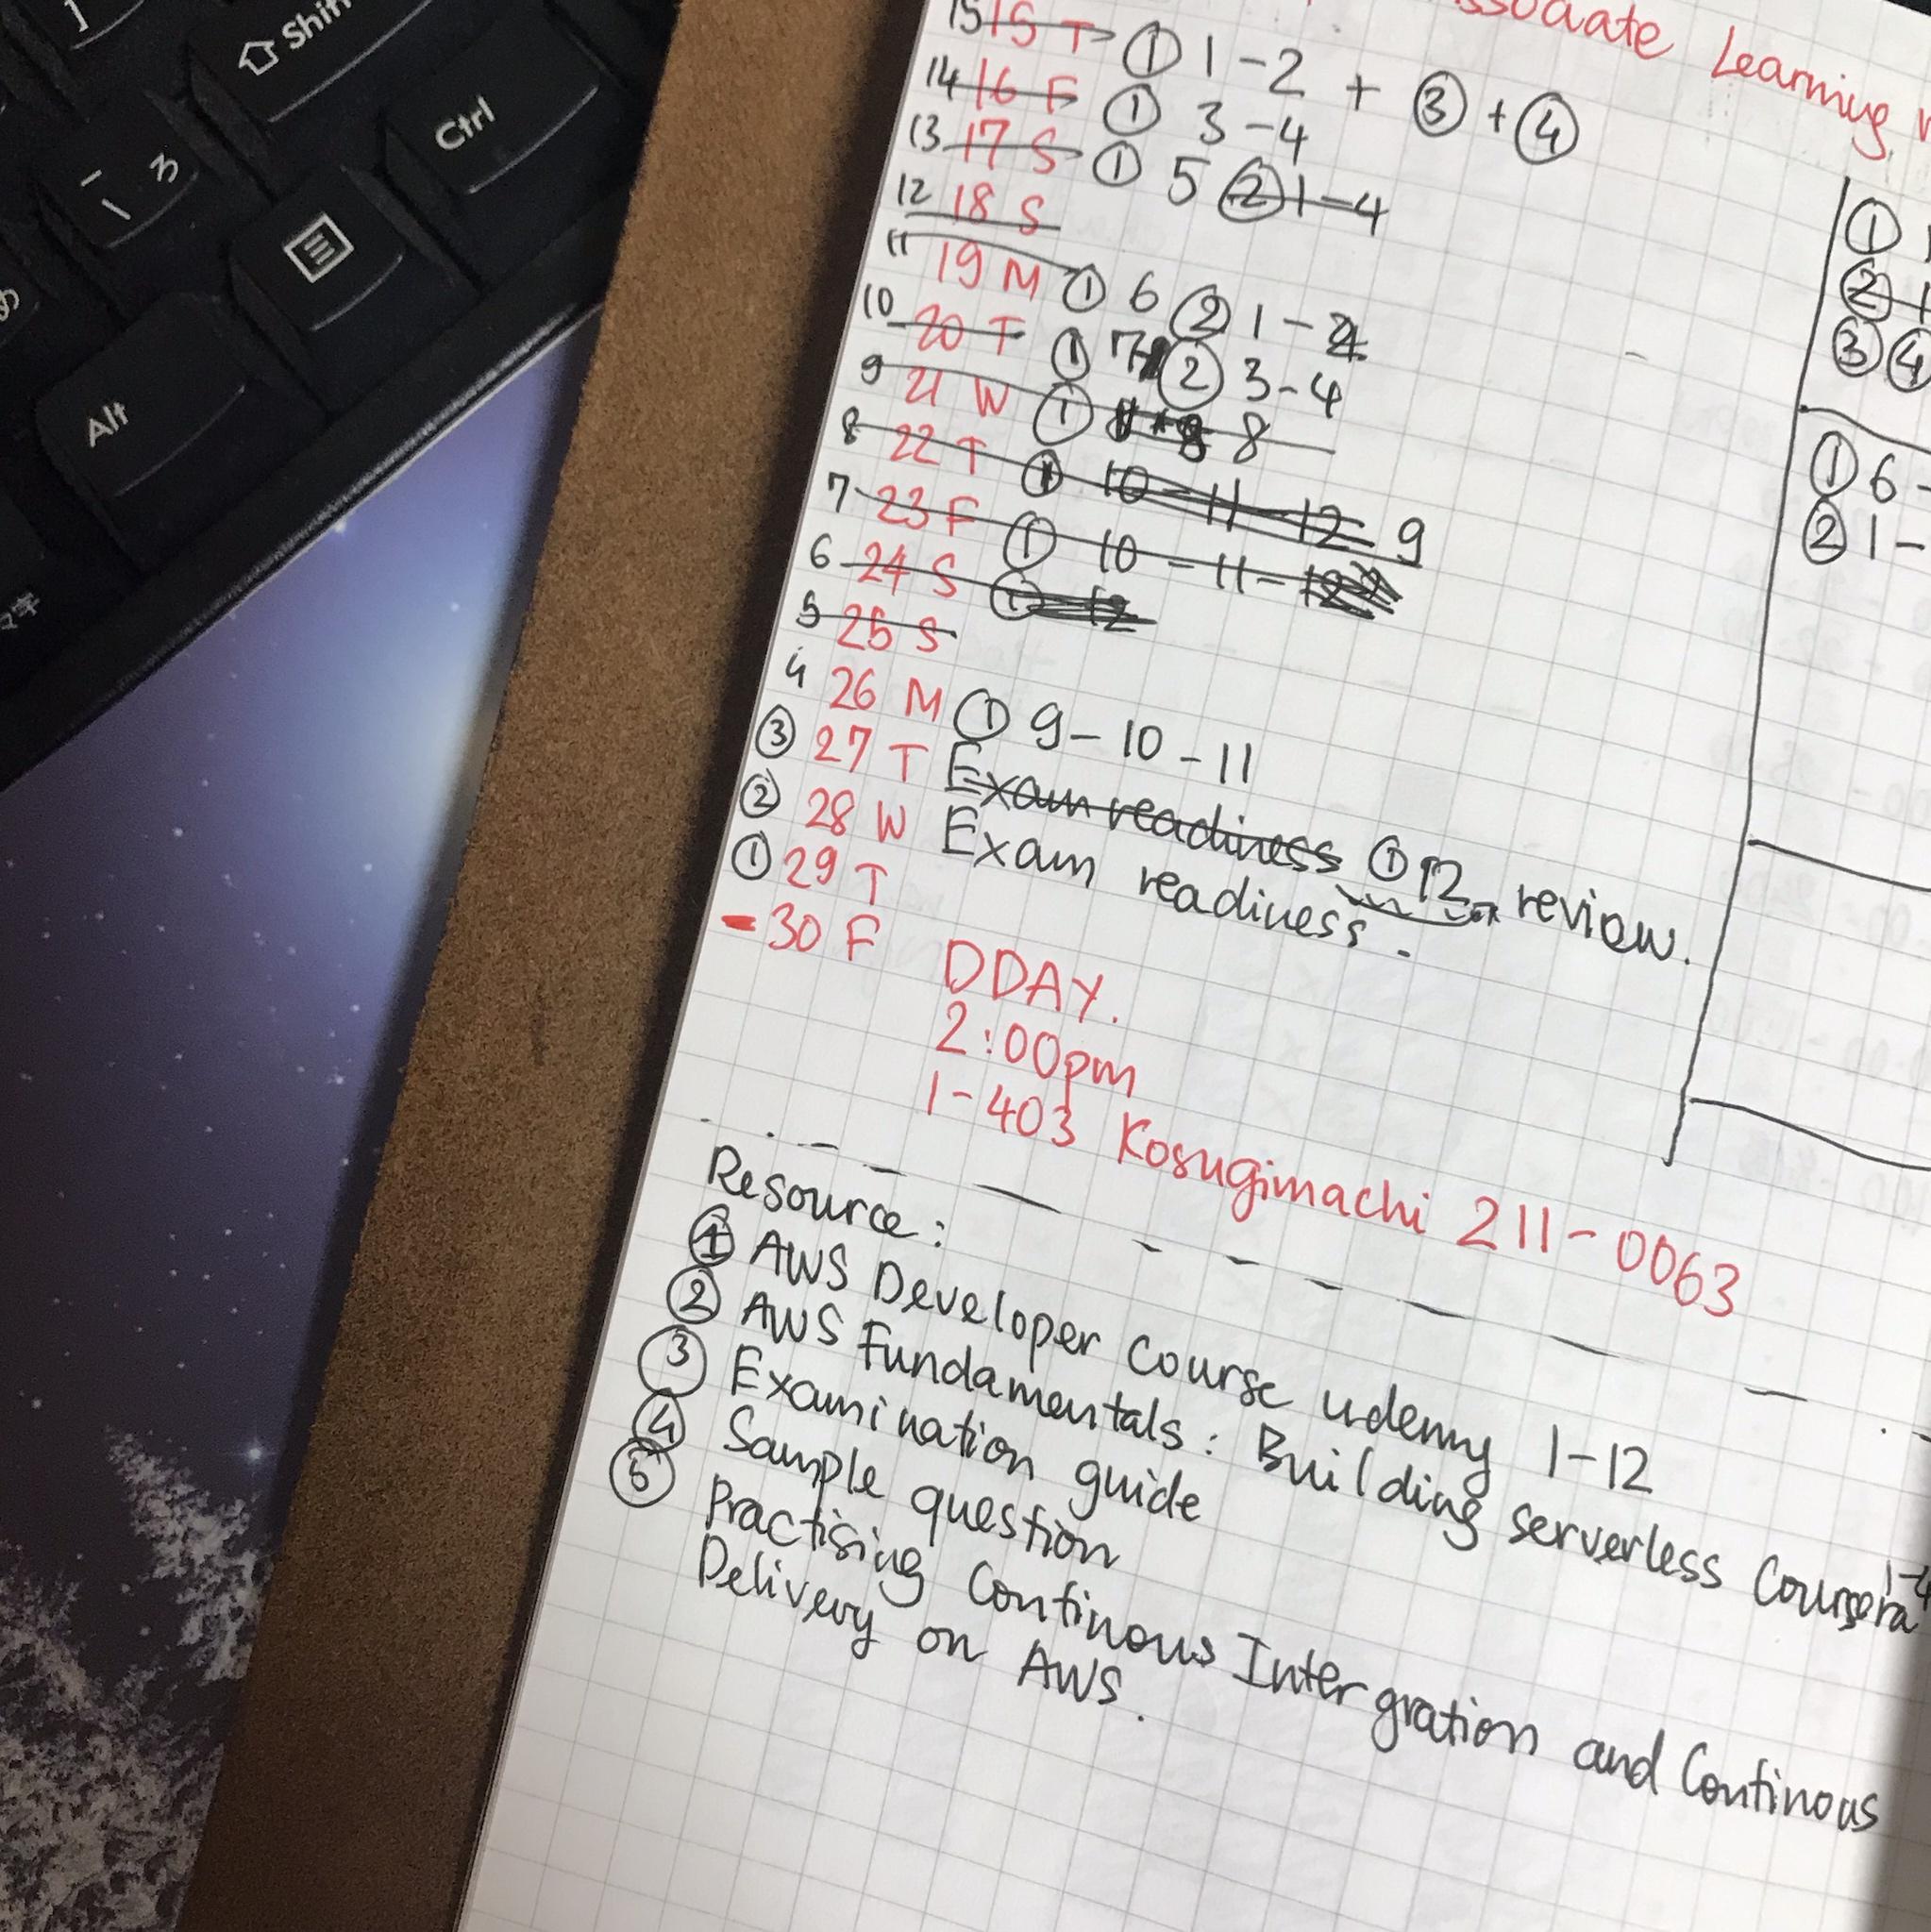 Shift
Ctrl
Alt
ろ
Learning
15 15 T ① 1-2 + ③ + ④
14 16 F ① 3-4
13 17 S ① 5 ② 1-4
12 18 S
11 19 M ① 6 ② 1-2
10 20 T ① 7 ② 3-4
9 21 W ① 8
8 22 T ① 10-11-12 9
7 23 F ① 10-11-12
6 24 S ① 12
5 25 S
4 26 M ① 9-10-11
③ 27 T Exam readiness ① 12 review.
② 28 W Exam readiness.
① 29 T
- 30 F DDAY.
2:00pm
1-403 Kosugimachi 211-0063
①
②
③ ④
① 6 -
② 1 -
Resource:
① AWS Developer Course udemy 1-12
② AWS Fundamentals: Building serverless Coursera
③ Examination guide
④ Sample question
⑤ Practising Continous Intergration and Continous
Delivery on AWS.